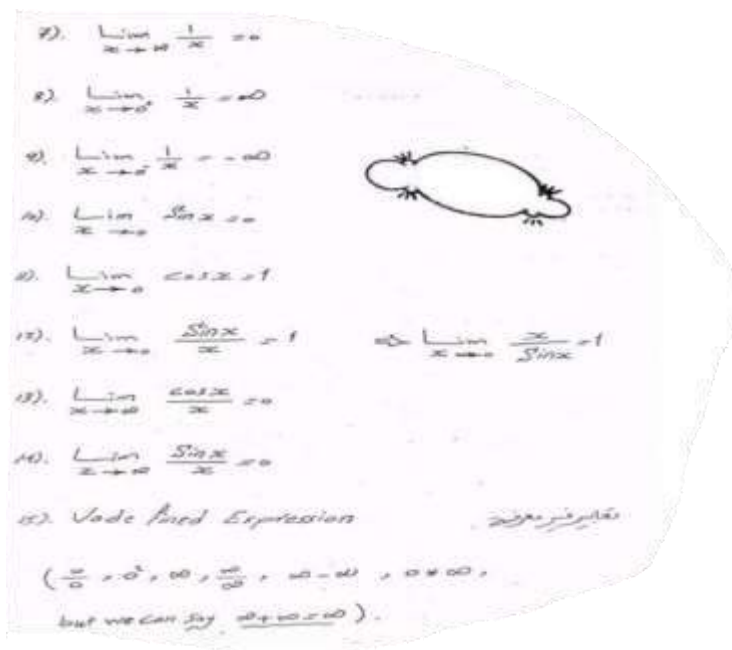 7). Lim x→∞ 1/x = 0
8). Lim x→0⁺ 1/x = ∞
9). Lim x→0⁻ 1/x = -∞
10). Lim x→0 Sin x = 0
11). Lim x→0 cos x = 1
12). Lim x→0 Sinx/x = 1 ⇒ Lim x→0 x/Sinx = 1
13). Lim x→∞ cosx/x = 0
14). Lim x→∞ Sinx/x = 0
15). Undefined Expression
∞/∞, ∞-∞, 0*∞,
but we can say ∞+∞=∞).